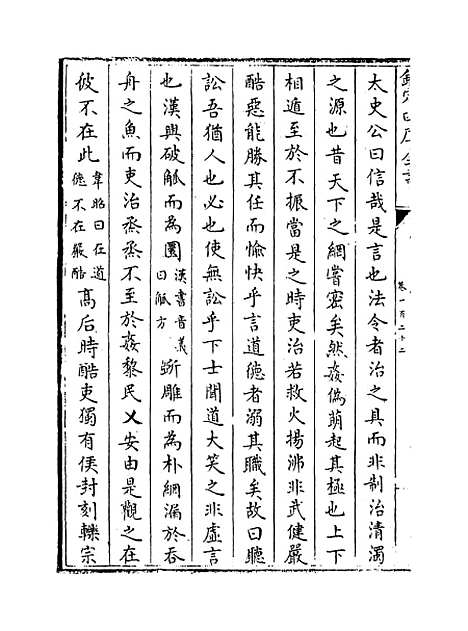 欽定四庫全書
卷一百二十二
太史公曰信哉是言也法令者治之具而非制治清濁
之源也昔天下之網嘗密矣然姦偽萌起其極也上下
相遁至於不振當是之時吏治若救火揚沸非武健嚴
酷惡能勝其任而愉快乎言道徳者溺其職矣故曰聽
訟吾猶人也必也使無訟乎下士聞道大笑之非虛言
也漢興破觚而為圜漢書音義曰觚方斲雕而為朴網漏於吞
舟之魚而吏治烝烝不至於姦黎民乂安由是觀之在
彼不在此韋昭曰在道徳不在嚴酷髙后時酷吏獨有侯封刻轢宗